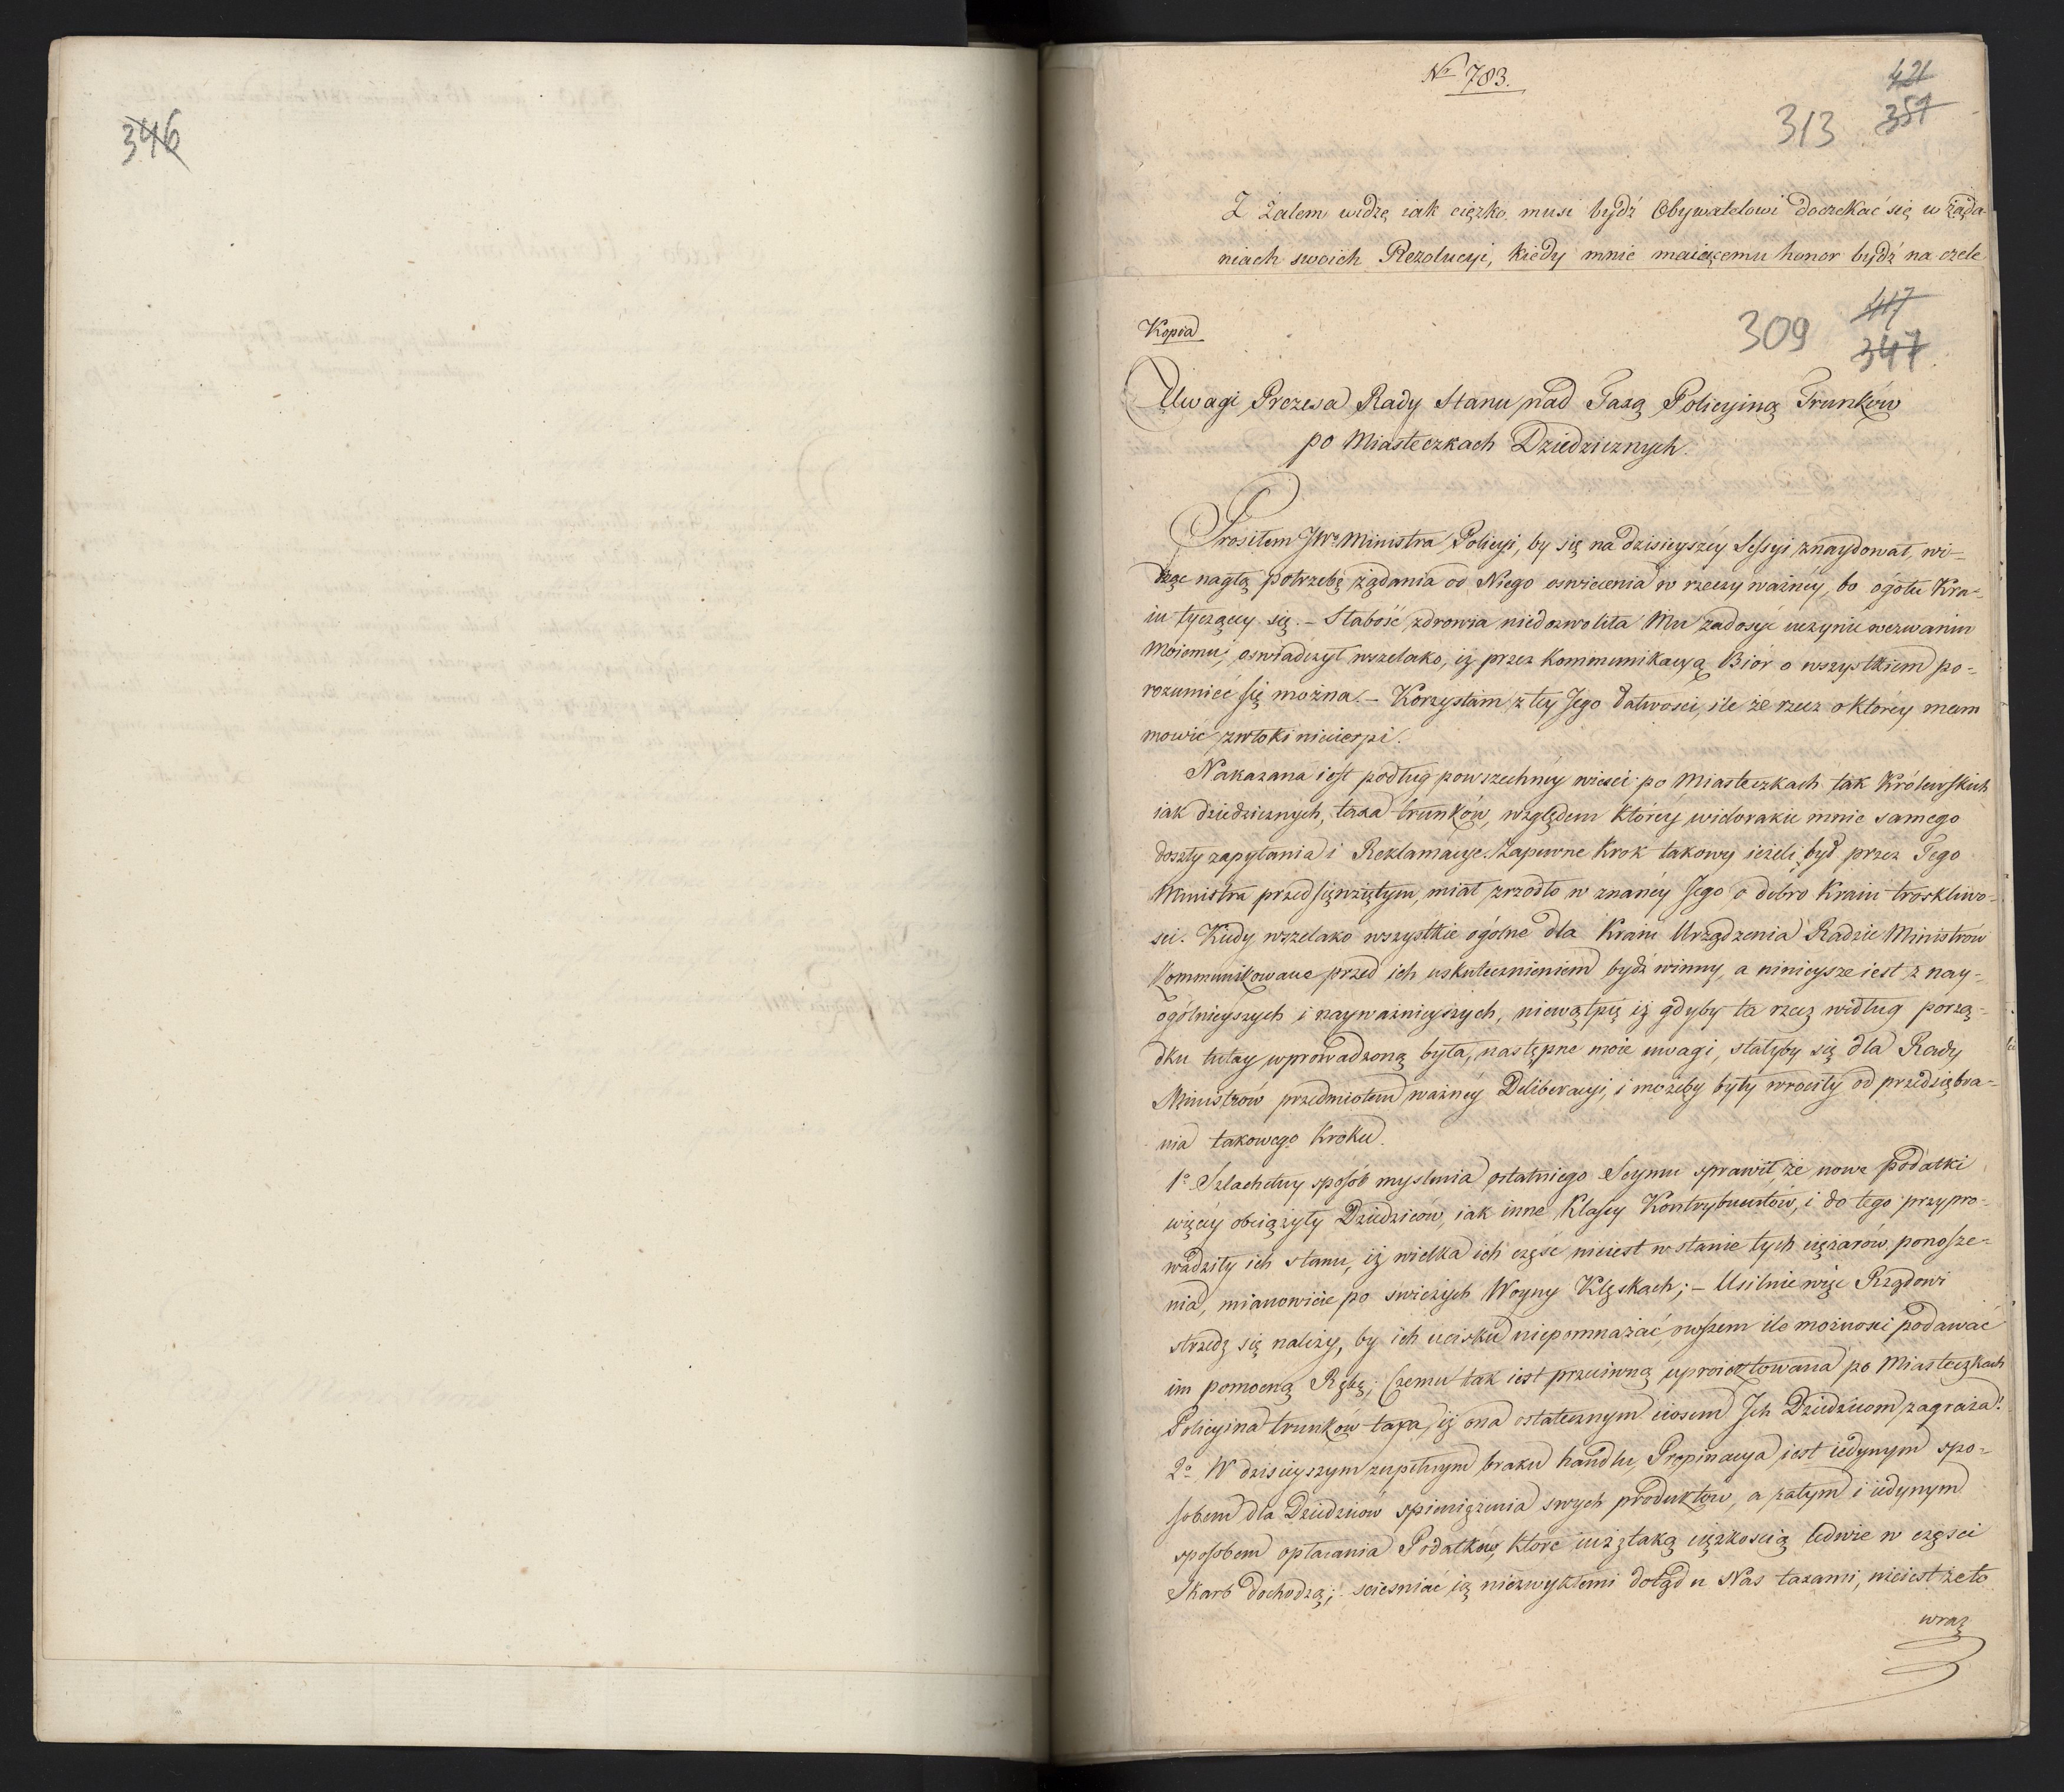 346
Nr 783.
421
313 351
Z żalem widzę iak ciężko musi bydź Obywatelowi doczekać się w żąda-
niach swoich Rezolucyi, kiedy mnie maiącemu honor bydź na czele
417
309
347
Kopia
Uwagi Prezesa Rady Stanu nad Taxą Policyiną Trunków
po Miasteczkach Dziedzicznych.
Prosiłem JWo Ministra Policyi, by się na dzisieyszéy Sessyi znaydował, wi-
dząc nagłą potrzebę żądania od Niego oswiecenia w rzeczy ważnéy, bo ogółu Kra-
iu tyczącey się. – Słabość zdrowia niedozwoliła Mu zadosyć uczynić wezwaniu
moiemu, oswiadczył wszelako, iż przez Kommunikacyą Biór o wszystkiem po-
rozumieć się można. – Korzystam z tey Jego łatwosci, ile że rzecz o któréy mam
mowić zwłoki niecierpi.
Nakazana iest podług powszechnéy wiesci po Miasteczkach tak Królewskich
iak dziedzicznych, taxa trunków, względem któréy wielorakie mnie samego
doszły zapytania i Reklamacye. Zapewne Krok takowy ieżeli był przez Tego
Ministra przedsięwziętym, miał zrzodło w znanéy Jego o dobro Kraiu troskliwo-
sci. Kiedy wszelako wszystkie ogólne dla Kraiu Urządzenia Radzie Ministrów
Kommunikowane przed ich uskutecznieniem bydź winny, a ninieysze iest z nay-
ogólnieyszych i nayważnieyszych, niewątpię iż gdyby ta rzecz według porzą-
dku tutay wprowadzoną była, następne moie uwagi, stałyby się dla Rady
Ministrów przedmiotem ważnéy Deliberacyi, i możeby były wrociły od przedsiębra-
nia takowego Kroku.
1o Szlachetny sposób myslenia ostatniego Seymu sprawił, że nowe podatki
więcéy obciążyły Dziedziców, iak inne Klassy Kontrybuentów, i do tego przypro-
wadziły ich stanu, iż wielka ich część nieiest w stanie tych ciężarów ponosze-
nia, mianowicie po swieżych Woyny Klęskach; – Usilnie więc Rządowi
strzedz się należy, by ich ucisku niepomnażać, owszem ile możnosci podawać
im pomocną Rękę; Czemu tak iest przeciwną uproiektowana po Miasteczkach
Policyina trunków taxa, iż ona ostatecznym ciosem Ich Dziedzicom zagraża!
2o W dzisieyszym zupełnym braku handlu, Propinacya iest iedynym spo-
sobem dla Dziedziców spieniężenia swych produktów, a zatym i iedynym
sposobem opłacania Podatków, które iuż z taką ciężkoscią ledwie w części
Skarb dochodzą; sciesniać ią niezwykłemi dotąd u Nas taxami, nieiest że to
wraz